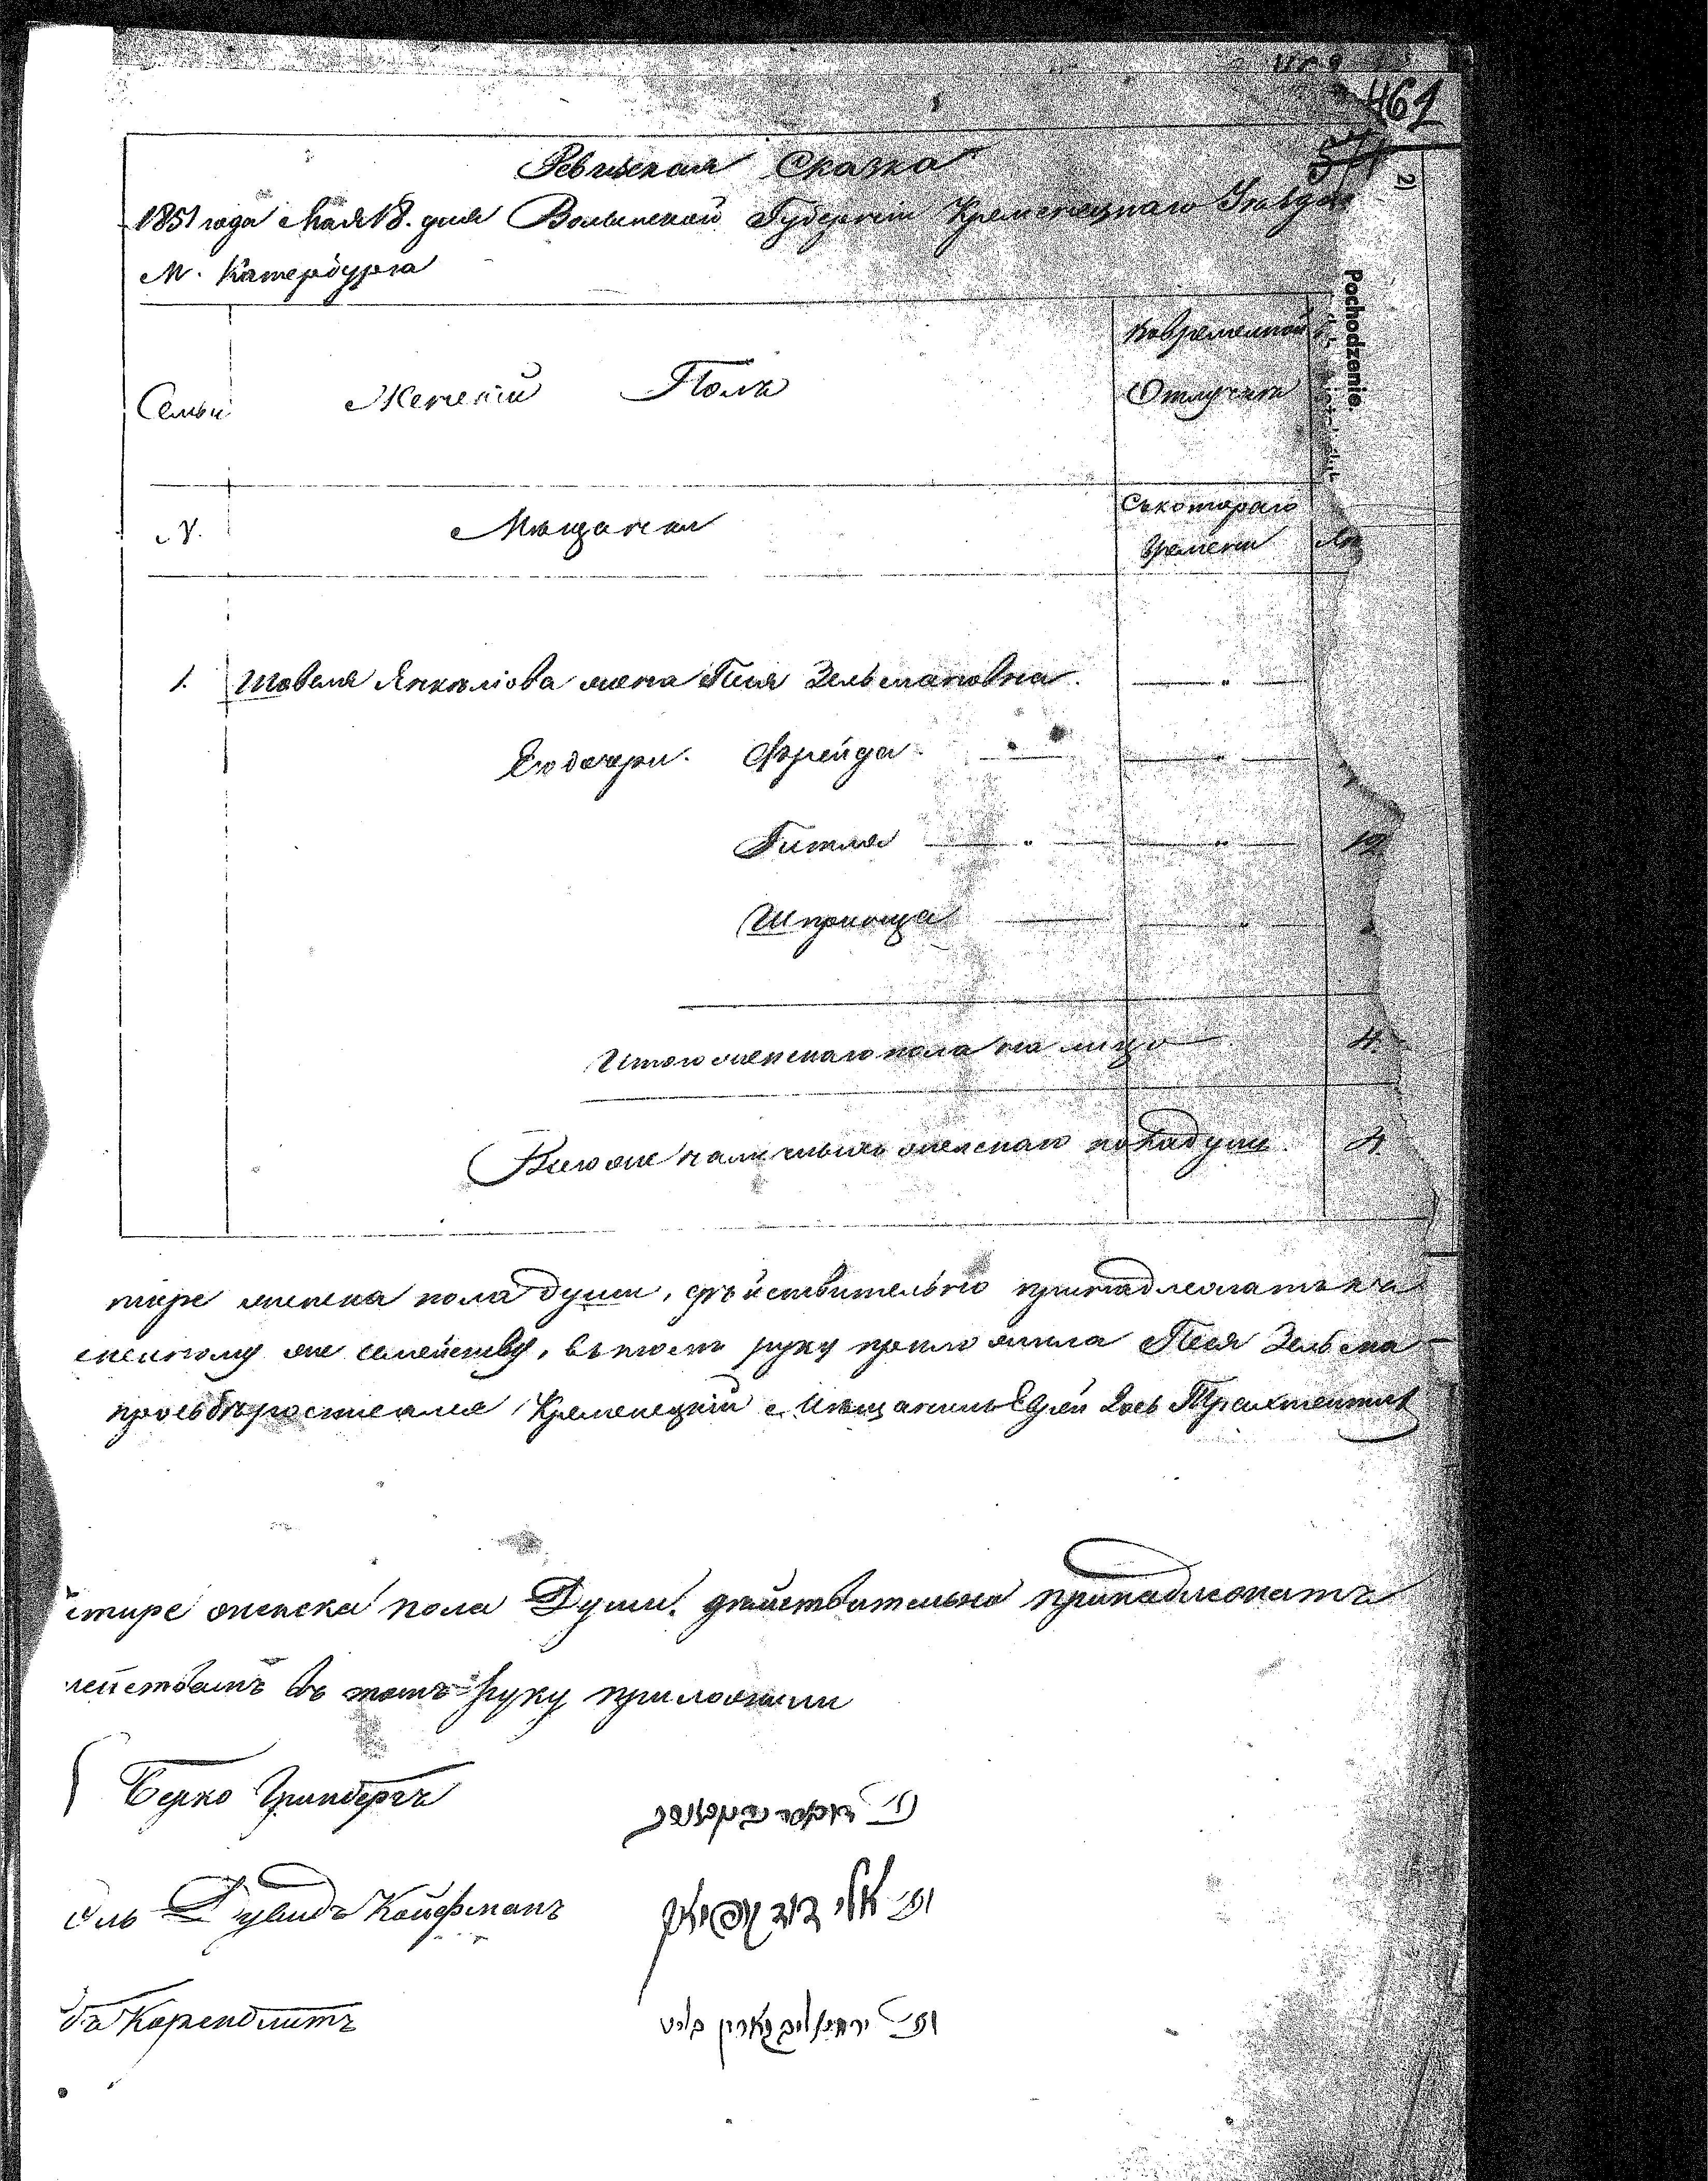 461
57
2)
Ревизская Сказка
1851 года Мая 18. дня Волынской Губерніи Кременецкаго Уѣзда
М. Катербурга
Pochodzenie.
Семьи Женскій Полъ Во временной Отлучкѣ
N. Мѣщанки Съ котораго времени
1. Шовеля Янкелiова жена Песя Зельмановна.
Его дочери. Фрейда
Гитля 12
Шпринца
Итого женскаго пола на лицо 4.
Всего же наличныхъ женскаго пола душъ. 4
тире женска пола души, дѣйствительно принадлежатъ къ
скому же семейству, въ томъ руку приложила Песя Зельма
просьбѣ росписался Кременецкій Мѣщанинъ Еврей
етире женска пола Души. дѣйствительно принадлежатъ
мействамъ въ томъ руку приложили
Берко Гринбергъ
оль Дувидъ Койфманъ
נו' אלי דוד קופמאן
бъ Коренблитъ
נו' קארין בליט